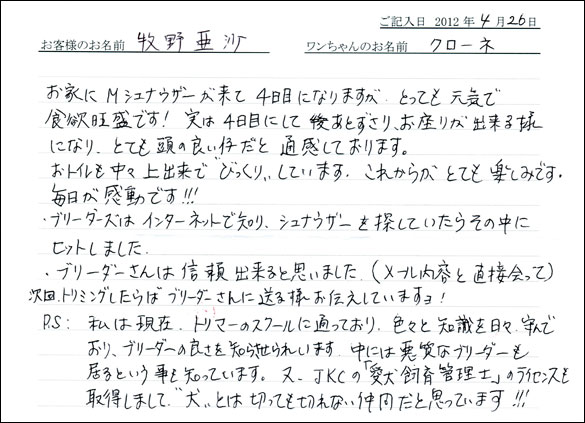 ご記入日 2012年4月26日
お客様のお名前 牧野亜沙 ワンちゃんのお名前 クローネ
お家にMシュナウザーが来て4日目になりますが、とっても元気で
食欲旺盛です!実は4日目にして後あとずさり、お座りが出来る様
になり、とても頭の良い仔だと通感しております。
おトイレも中々上出来で"びっくり"しています。これからがとても楽しみです。
毎日が感動です!!!
・ブリーダーズはインターネットで知り、シュナウザーを探していたらその中に
ヒットしました。
・ブリーダーさんは信頼出来ると思いました。(メール内容と直接会って)
次回、トリミングしたらばブリーダーさんに送る様お伝えしていますョ!
P.S: 私は現在、トリマーのスクールに通っており、色々と知識を日々学んで
おり、ブリーダーの良さを知らせられいます。中には悪質なブリーダーも
居るという事を知っています。又、JKCの「愛犬飼育管理士」のライセンスも
取得しまして"犬"とは切っても切れない仲間だと思っています!!!